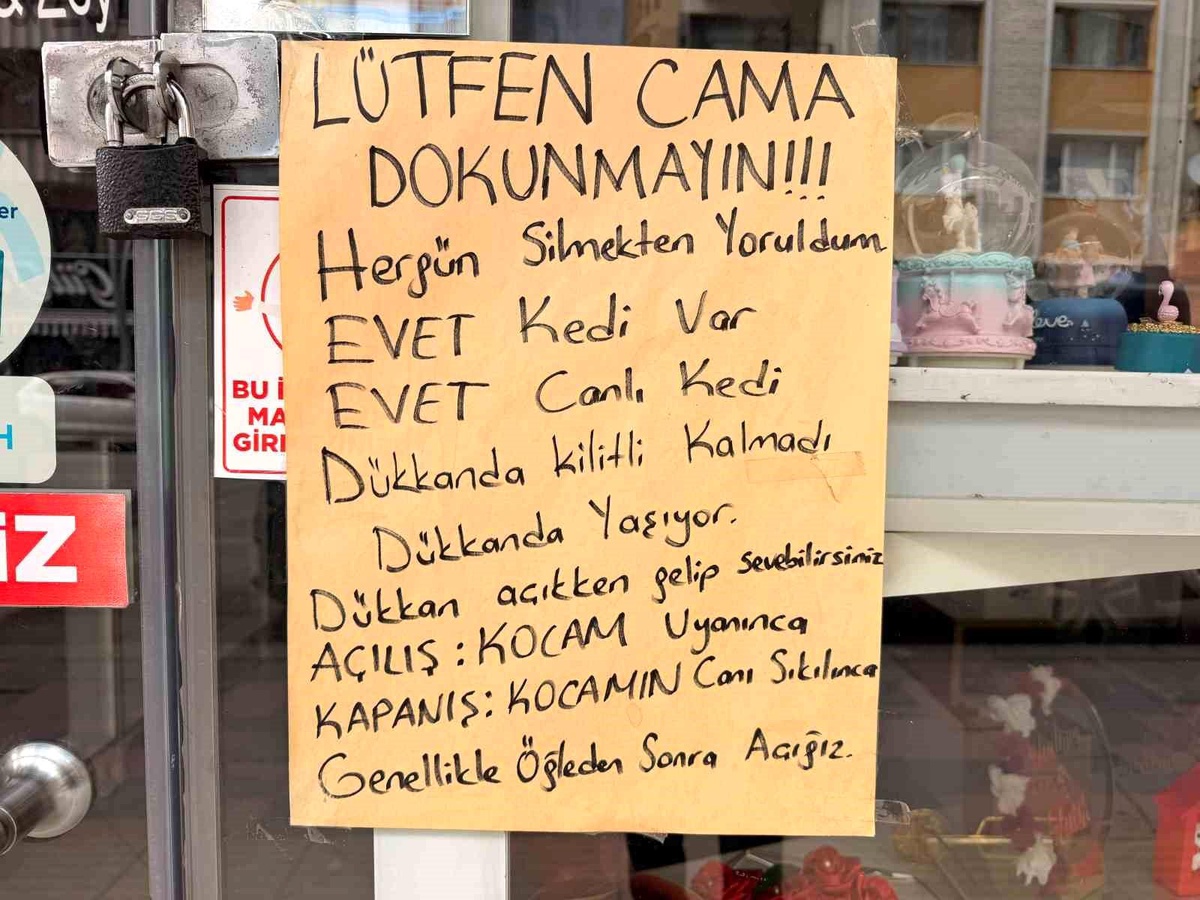 LÜTFEN CAMA
DOKUNMAYIN!!!
Hergün Silmekten Yoruldum
EVET Kedi Var
EVET Canlı Kedi
Dükkanda kilitli Kalmadı
Dükkanda Yaşıyor.
Dükkan açıkken gelip sevebilirsiniz
AÇILIŞ : KOCAM Uyanınca
KAPANIŞ: KOCAMIN Canı Sıkılınca
Genellikle Öğleden Sonra Açığız.
BU İ
MA
GİRİ
er
H
İZ